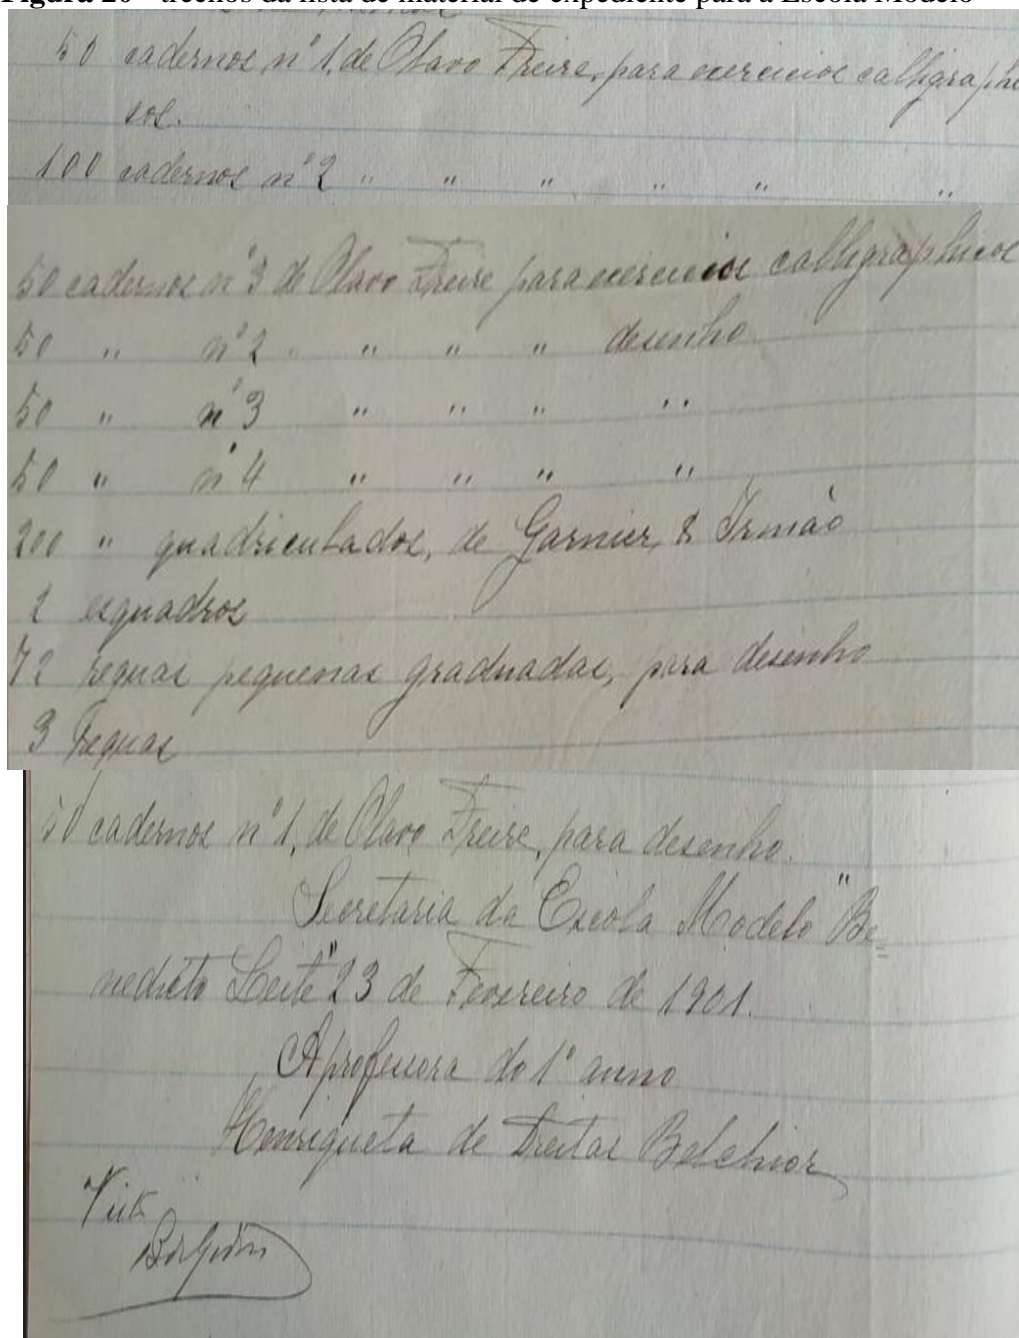 Figura 20 - trechos da lista de material de expediente para a Escola Modelo
50 cadernos nº 1, de Olavo Freire, para exercicios calligraphi
cos.
100 cadernos nº 2 " " " " " "
50 cadernos nº 3 de Olavo Freire para exercicios calligraphicos
50 " nº 2 " " " desenho
50 " nº 3 " " " "
50 " nº 4 " " " "
200 " quadriculados, de Garnier & Irmão
2 esquadros
72 reguas pequenas graduadas, para desenho
3 reguas
50 cadernos nº 1, de Olavo Freire, para desenho.
Secretaria da Escola Modelo "Be=
nedicto Leite" 23 de Fevereiro de 1901.
A professora do 1º anno
Henriqueta de Freitas Belchior
Visto